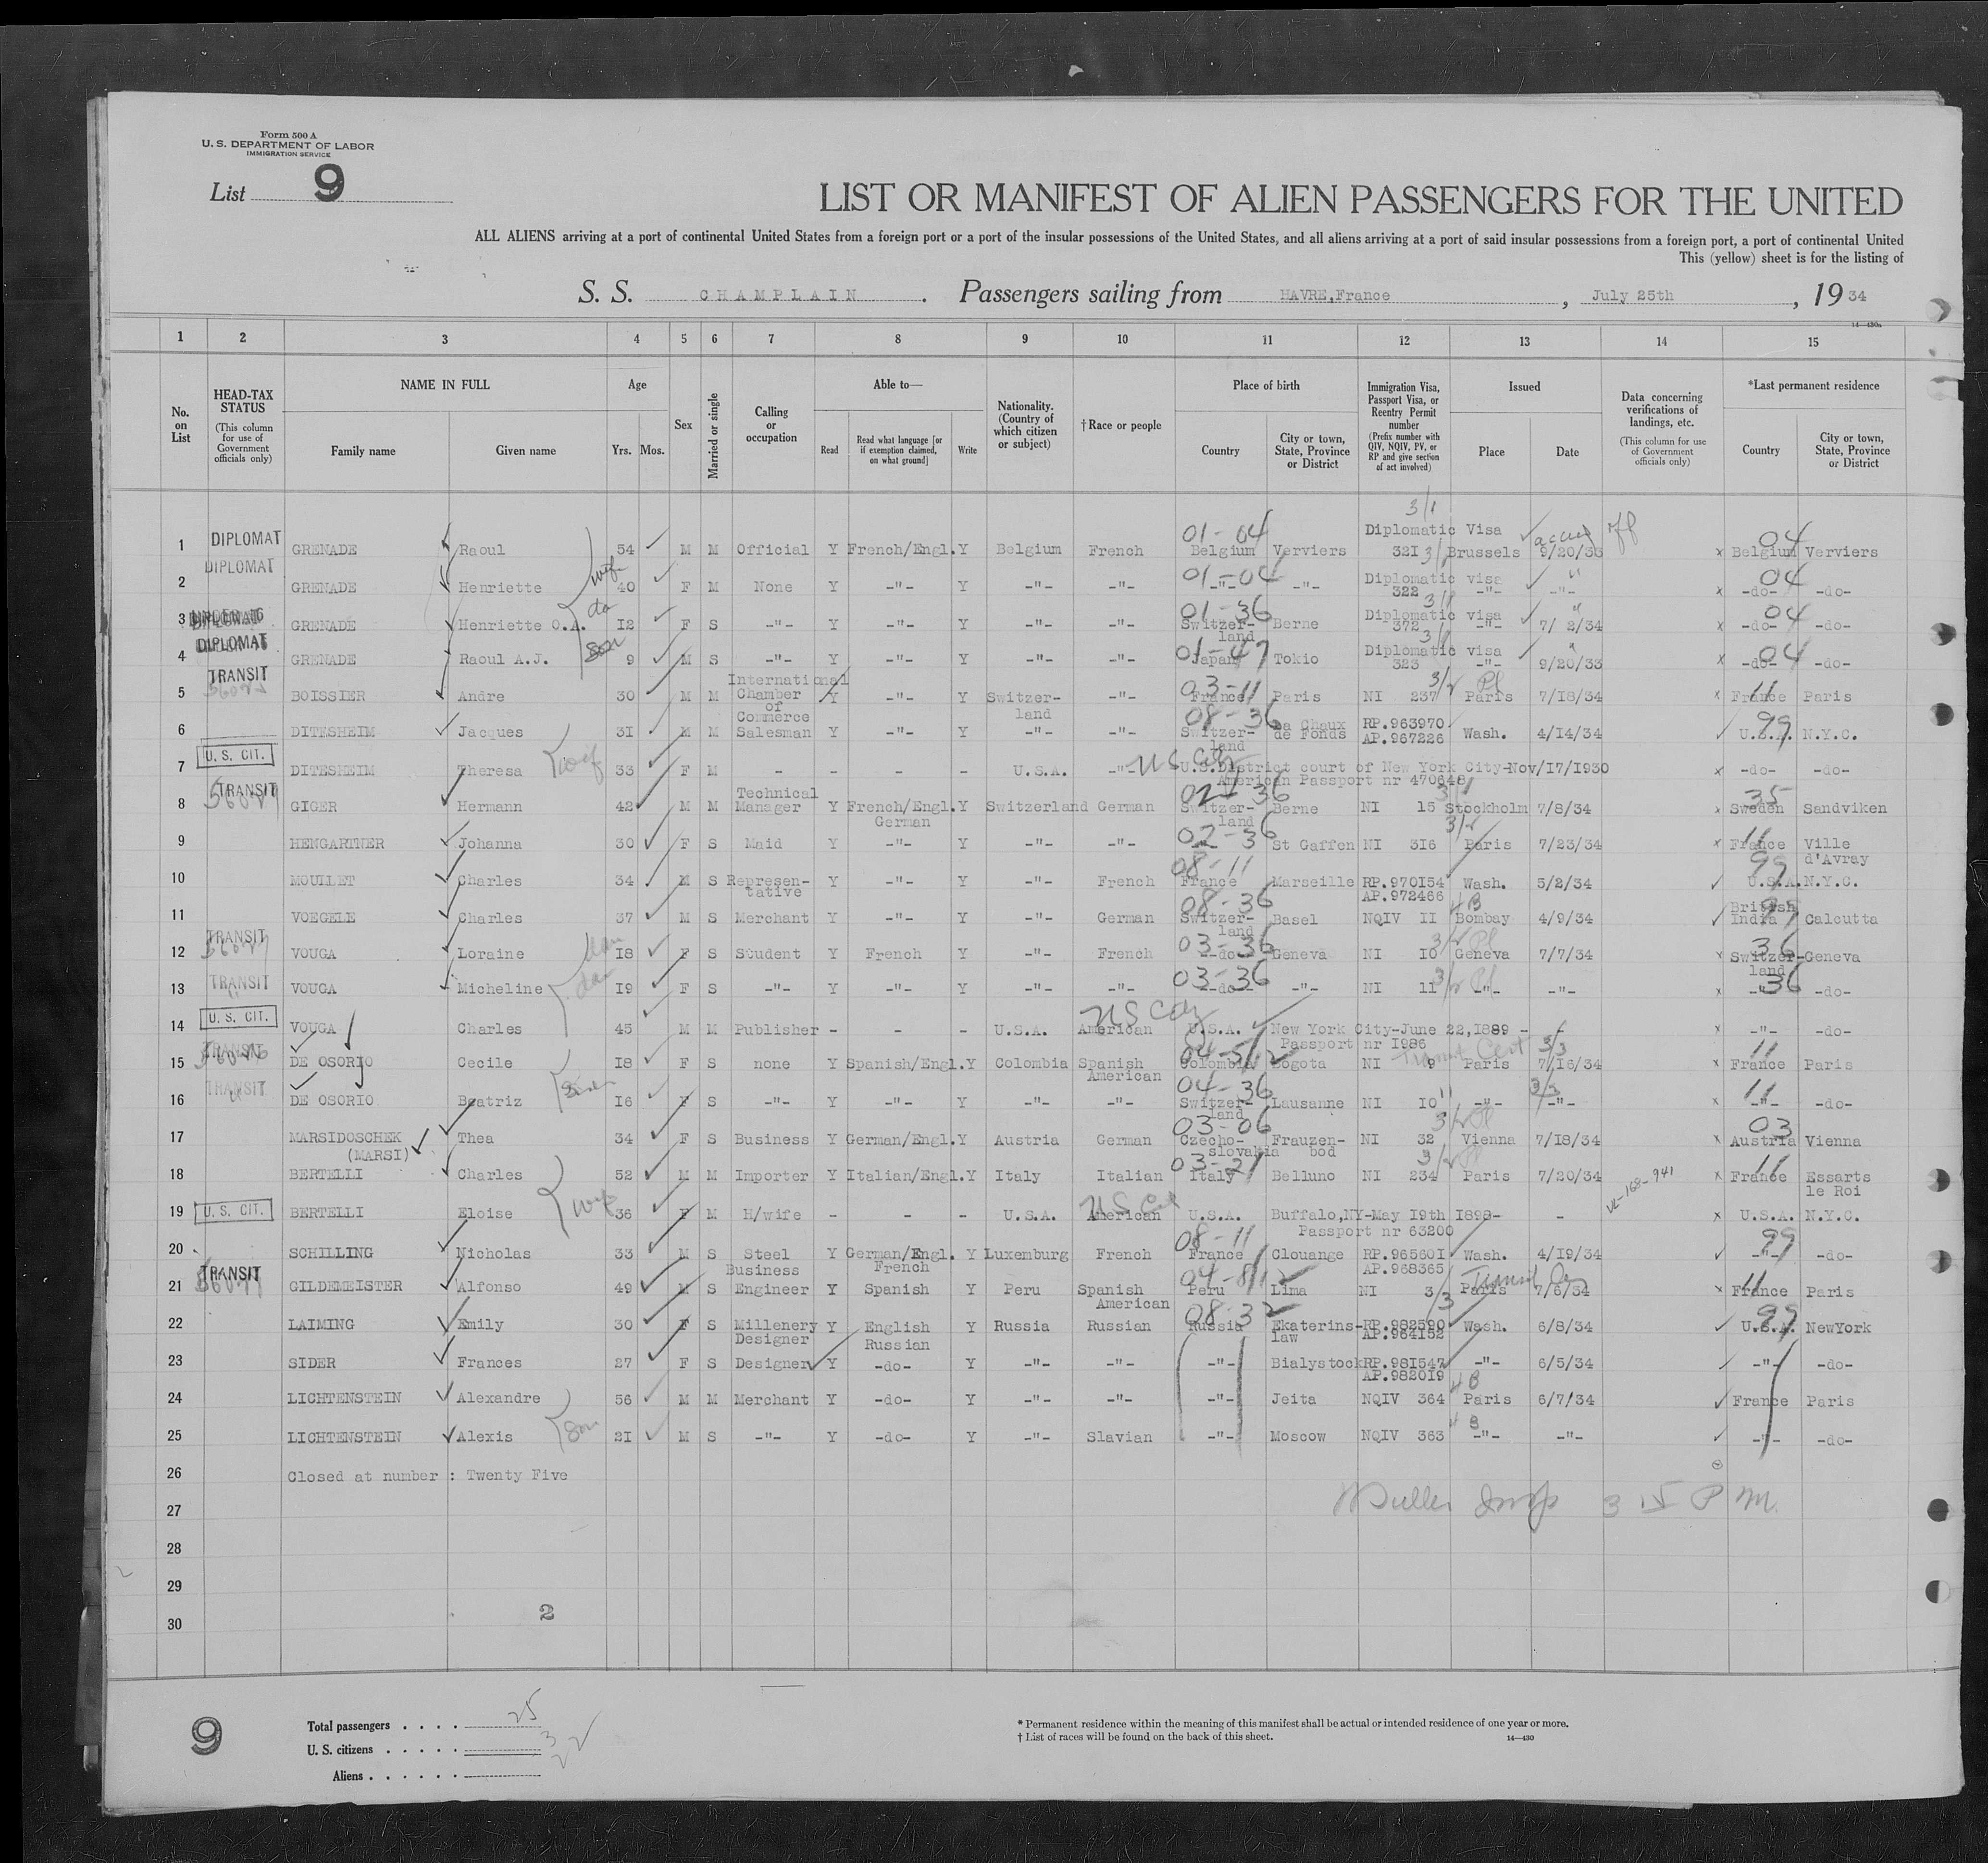 Form 500 A
U. S. DEPARTMENT OF LABOR
IMMIGRATION SERVICE
List 9
LIST OR MANIFEST OF ALIEN PASSENGERS FOR THE UNITED
ALL ALIENS arriving at a port of continental United States from a foreign port or a port of the insular possessions of the United States, and all aliens arriving at a port of said insular possessions from a foreign port, a port of continental United
This (yellow) sheet is for the listing of
S. S. CHAMPLAIN. Passengers sailing from HAVRE,France, July 25th, 19 34
14—430a
1 2 3 4 5 6 7 8 9 10 11 12 13 14 15
No. on List
HEAD-TAX STATUS (This column for use of Government officials only)
NAME IN FULL Family name Given name
Age Yrs. Mos.
Sex
Married or single
Calling or occupation
Able to— Read Read what language [or if exemption claimed, on what ground] Write
Nationality. (Country of which citizen or subject)
†Race or people
Place of birth Country City or town, State, Province or District
Immigration Visa, Passport Visa, or Reentry Permit number (Prefix number with QIV, NQIV, PV, or RP and give section of act involved)
Issued Place Date
Data concerning verifications of landings, etc. (This column for use of Government officials only)
*Last permanent residence Country City or town, State, Province or District
3/1
1 DIPLOMAT GRENADE Raoul 54 M M Official Y French/Engl. Y Belgium French 01-04 Belgium Verviers Diplomatic Visa 321 3/1 Brussels 9/20/33 x 04 Belgium Verviers
2 DIPLOMAT GRENADE Henriette wife 40 F M None Y -"- Y -"- -"- 01-04 -"- -"- Diplomatic visa 322 3/1 -"- -"- x 04 -do- -do-
3 DIPLOMAT GRENADE Henriette O.A. da 12 F S -"- Y -"- Y -"- -"- 01-36 Switzerland Berne Diplomatic visa 372 3/1 -"- 7/ 2/34 x 04 -do- -do-
4 DIPLOMAT GRENADE Raoul A.J. son 9 M S -"- Y -"- Y -"- -"- 01-47 Japan Tokio Diplomatic visa 323 -"- 9/20/33 x 04 -do- -do-
5 TRANSIT BOISSIER Andre 30 M M International Chamber of Commerce Y -"- Y Switzerland -"- 03-11 France Paris NI 237 3/2 Pl Paris 7/18/34 x 11 France Paris
6 DITESHEIM Jacques 31 M M Salesman Y -"- Y -"- -"- 08-36 Switzerland La Chaux de Fonds RP.963970 AP.967226 Wash. 4/14/34 99 U.S.A. N.Y.C.
7 U. S. CIT. DITESHEIM Theresa wife 33 F M - - - U.S.A. -"- US Cit U.S.District court of New York City-Nov/17/1930 American Passport nr 470648 x -do- -do-
8 TRANSIT GIGER Hermann 42 M M Technical Manager Y French/Engl. German Y Switzerland German 02-36 Switzerland Berne NI 15 Stockholm 7/8/34 x 35 Sweden Sandviken
9 HENGARTNER Johanna 30 F S Maid Y -"- Y -"- -"- 02-36 St Gaffen NI 316 3/2 Paris 7/23/34 x 11 France Ville d'Avray
10 MOUILET Charles 34 M S Representative Y -"- Y -"- French 08-11 France Marseille RP.970154 AP.972466 Wash. 5/2/34 99 U.S.A. N.Y.C.
11 VOEGELE Charles 37 M S Merchant Y -"- Y -"- German 08-36 Switzerland Basel NQIV II 4B Bombay 4/9/34 British India Calcutta
12 TRANSIT VOUGA Loraine dau 18 F S Student Y French Y -"- French 03-36 -do- Geneva NI 10 3/2 Pl Geneva 7/7/34 x 36 Switzerland Geneva
13 TRANSIT VOUGA Micheline dau 19 F S -"- Y -"- Y -"- -"- 03-36 -do- -"- NI 11 3/2 Pl -"- -"- x 36 -"- -do-
14 U. S. CIT. VOUGA Charles 45 M M Publisher - - - U.S.A. American US Cit U.S.A. New York City-June 22,1889 - - Passport nr 1986 x -"- -do-
15 TRANSIT DE OSORIO Cecile 18 F S none Y Spanish/Engl. Y Colombia Spanish American 04-51 Colombia Bogota NI 9 Transit Cert Paris 3/3 7/16/34 x 11 France Paris
16 TRANSIT DE OSORIO Beatriz 16 F S -"- Y -"- Y -"- -"- 04-36 Switzerland Lausanne NI 10 -"- 3/3 -"- x 11 -"- -do-
17 MARSIDOSCHEK (MARSI) Thea 34 F S Business Y German/Engl. Y Austria German 03-06 Czechoslovakia Frauzenbod NI 32 3/2 Pl Vienna 7/18/34 x 03 Austria Vienna
18 BERTELLI Charles 52 M M Importer Y Italian/Engl. Y Italy Italian 03-21 Italy Belluno NI 234 3/2 Pl Paris 7/20/34 x 11 France Essarts le Roi
19 U. S. CIT. BERTELLI Eloise wife 36 F M H/wife - - - U.S.A. American US Cit U.S.A. Buffalo,NY-May 19th 1898- - Passport nr 63200 x U.S.A. N.Y.C.
20 SCHILLING Nicholas 33 M S Steel Business Y German/Engl. French Y Luxemburg French 08-11 France Clouange RP.965601 AP.968365 Wash. 4/19/34 99 -"- -do-
21 TRANSIT GILDEMEISTER Alfonso 49 M S Engineer Y Spanish Y Peru Spanish American 04-81 Peru Lima NI 3 3/3 Transit Paris 7/6/34 x 11 France Paris
22 LAIMING Emily 30 F S Millenery Designer Y English Russian Y Russia Russian 08-32 Russia Ekaterinslaw RP.982590 AP.964152 Wash. 6/8/34 99 U.S.A. NewYork
23 SIDER Frances 27 F S Designer Y -do- Y -"- -"- -"- Bialystock RP.981547 AP.982019 -"- 6/5/34 -"- -do-
24 LICHTENSTEIN Alexandre 56 M M Merchant Y -do- Y -"- -"- -"- Jeita NQIV 364 4B Paris 6/7/34 France Paris
25 LICHTENSTEIN Alexis son 21 M S -"- Y -do- Y -"- Slavian -"- Moscow NQIV 363 4B -"- -"- -"- -do-
26 Closed at number : Twenty Five
27 Insp 3 15 P M.
28
29
30
2
9
Total passengers . . . . 25
U. S. citizens . . . . . 3
Aliens . . . . . . 22
* Permanent residence within the meaning of this manifest shall be actual or intended residence of one year or more.
† List of races will be found on the back of this sheet.
14—430